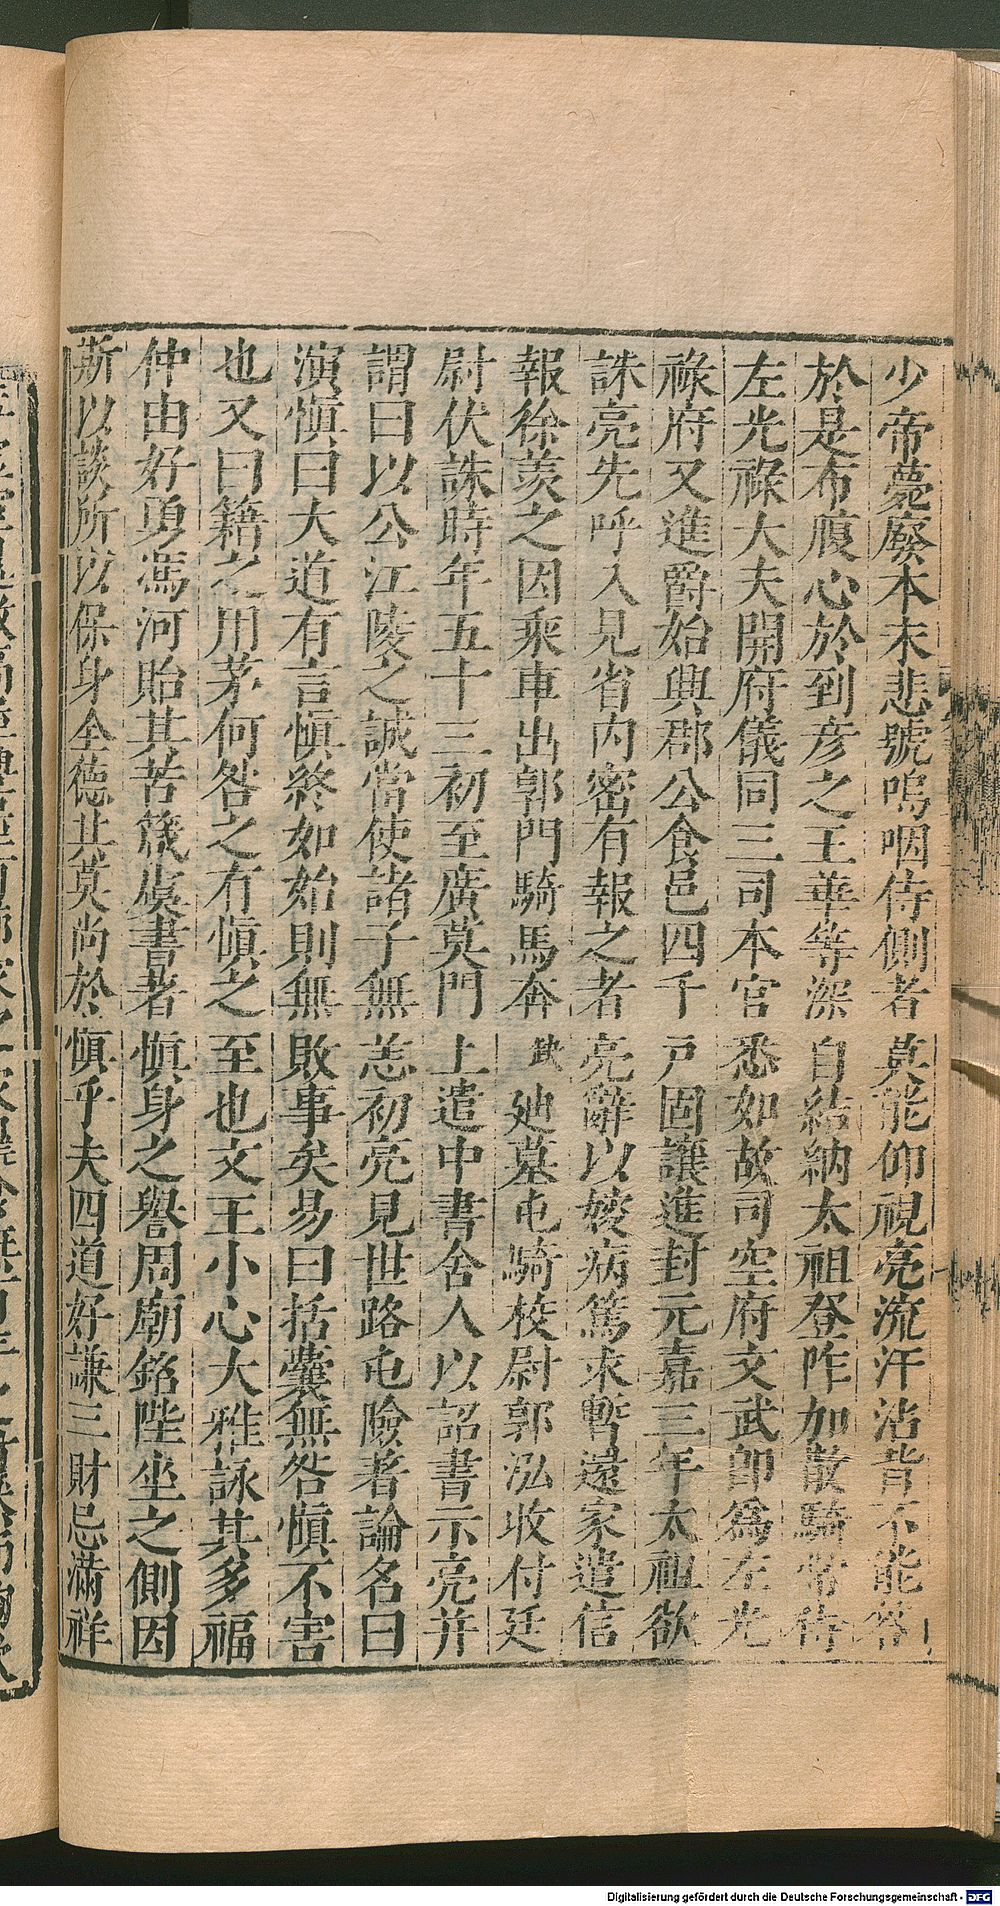 少帝薨廢本末悲號嗚咽侍側者莫能仰視亮流汗沾背不能答
於是布腹心於到彥之王華等深自結納太祖登阼加散騎常侍
左光祿大夫開府儀同三司本官悉如故司空府文武卽爲左光
祿府又進爵始興郡公食邑四千戸固讓進封元嘉三年太祖欲
誅亮先呼入見省內密有報之者亮辭以嫂病篤求暫還家遣信
報徐羨之因乘車出郭門騎馬奔武廸墓屯騎校尉郭泓收付廷
尉伏誅時年五十三初至廣莫門上遣中書舍人以詔書示亮并
謂曰以公江陵之誠當使諸子無恙初亮見世路屯險著論名曰
演愼曰大道有言愼終如始則無敗事矣易曰括囊無咎愼不害
也又曰籍之用茅何咎之有愼之至也文王小心大雅詠其多福
仲由好勇馮河貽其苦箴虞書著愼身之譽周廟銘陛坐之側因
斯以談所以保身全德其莫尚於愼乎夫四道好謙三財忌滿祥
Digitalisierung gefördert durch die Deutsche Forschungsgemeinschaft - DFG